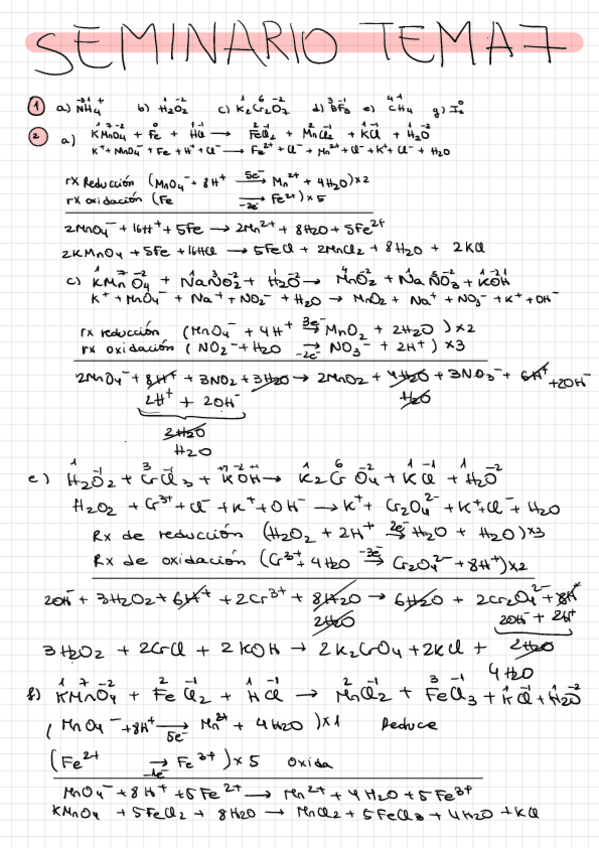 SEMINARIO TEMA 7
1 a) NH4 b) H2O2 c) K2Cr2O7 d) BF3 e) CH4 g) I2
2 a) KMnO4 + Fe + HCl → FeCl2 + MnCl2 + KCl + H2O
K+ + MnO4- + Fe + H+ + Cl- → Fe2+ + Cl- + Mn2+ + Cl- + K+ + Cl- + H2O
rx Reducción (MnO4- + 8H+ 5e-→ Mn2+ + 4H2O) x2
rx oxidación (Fe -2e-→ Fe2+) x 5
2MnO4- + 16H+ + 5Fe → 2Mn2+ + 8H2O + 5Fe2+
2KMnO4 + 5Fe + 16HCl → 5FeCl + 2MnCl2 + 8H2O + 2KCl
c) KMnO4 + NaNO2 + H2O → MnO2 + NaNO3 + KOH
K+ + MnO4- + Na+ + NO2- + H2O → MnO2 + Na+ + NO3- + K+ + OH-
rx reducción (MnO4- + 4H+ 3e-→ MnO2 + 2H2O) x2
rx oxidación (NO2- + H2O -2e-→ NO3- + 2H+) x3
2MnO4- + 8H+ + 3NO2 + 3H2O → 2MnO2 + 4H2O + 3NO3- + 6H+ + 2OH-
2H+ + 2OH- H2O
2H2O
H2O
e) H2O2 + CrCl3 + KOH → K2CrO4 + KCl + H2O
H2O2 + Cr3+ + Cl- + K+ + OH- → K+ + Cr2O4 2- + K+ + Cl- + H2O
Rx de reducción (H2O2 + 2H+ 2e-→ H2O + H2O) x3
Rx de oxidación (Cr3+ + 4H2O -3e-→ Cr2O4 2- + 8H+) x2
2OH- + 3H2O2 + 6H+ + 2Cr3+ + 8H2O → 6H2O + 2Cr2O4 2- + 8H+
2H2O 2OH- + 2H+
3H2O2 + 2CrCl + 2KOH → 2K2CrO4 + 2KCl + 2H2O
4H2O
f) KMnO4 + FeCl2 + HCl → MnCl2 + FeCl3 + KCl + H2O
(MnO4- + 8H+ 5e-→ Mn2+ + 4H2O) x1 Reduce
(Fe2+ -1e-→ Fe3+) x 5 Oxida
MnO4- + 8H+ + 5Fe2+ → Mn2+ + 4H2O + 5Fe3+
KMnO4 + 5FeCl2 + 8H2O → MnCl2 + 5FeCl3 + 4H2O + KCl